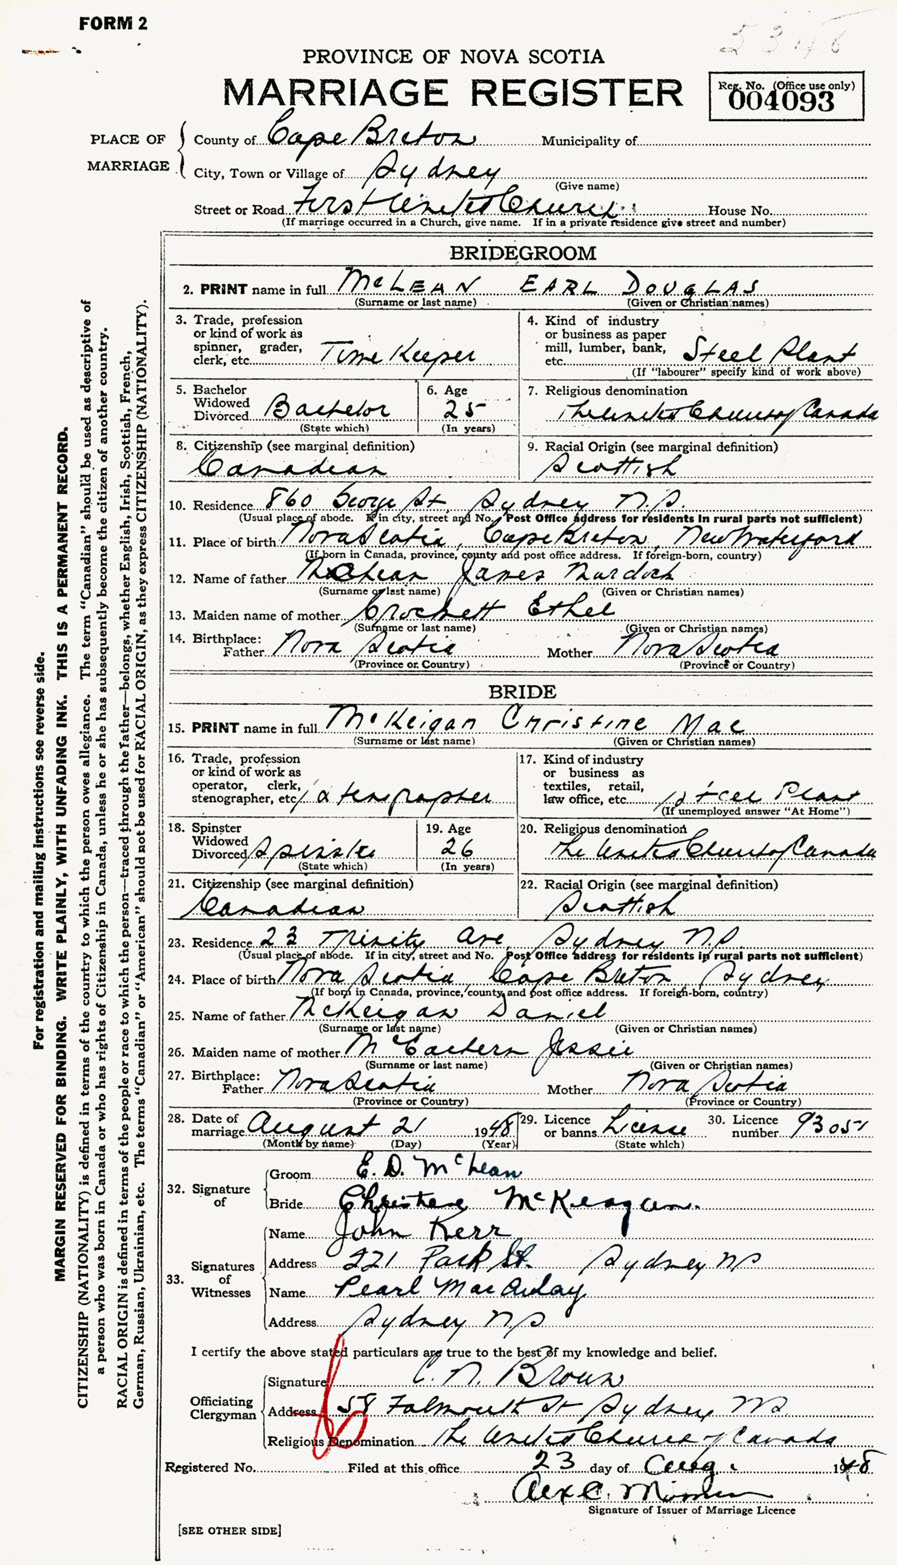 FORM 2
5346
PROVINCE OF NOVA SCOTIA
MARRIAGE REGISTER
Reg. No. (Office use only)
004093
PLACE OF MARRIAGE
County of Cape Breton Municipality of
City, Town or Village of Sydney
(Give name)
Street or Road First United Church House No.
(If marriage occurred in a Church, give name. If in a private residence give street and number)
BRIDEGROOM
2. PRINT name in full McLEAN EARL DOUGLAS
(Surname or last name) (Given or Christian names)
3. Trade, profession or kind of work as spinner, grader, clerk, etc. Time Keeper
4. Kind of industry or business as paper mill, lumber, bank, etc. Steel Plant
(If "labourer" specify kind of work above)
5. Bachelor Widowed Divorced Bachelor
(State which)
6. Age 25
(In years)
7. Religious denomination
The United Church of Canada
8. Citizenship (see marginal definition)
Canadian
9. Racial Origin (see marginal definition)
Scottish
10. Residence 860 George St. Sydney N.S.
(Usual place of abode. If in city, street and No. Post Office address for residents in rural parts not sufficient)
11. Place of birth Nova Scotia, Cape Breton, New Waterford
(If born in Canada, province, county and post office address. If foreign-born, country)
12. Name of father McLean James Murdoch
(Surname or last name) (Given or Christian names)
13. Maiden name of mother Crockett Ethel
(Surname or last name) (Given or Christian names)
14. Birthplace: Father Nova Scotia Mother Nova Scotia
(Province or Country) (Province or Country)
BRIDE
15. PRINT name in full McKeigan Christine Mac
(Surname or last name) (Given or Christian names)
16. Trade, profession or kind of work as operator, clerk, stenographer, etc. Stenographer
17. Kind of industry or business as textiles, retail, law office, etc. Steel Plant
(If unemployed answer "At Home")
18. Spinster Widowed Divorced Spinster
(State which)
19. Age 26
(In years)
20. Religious denomination
The United Church of Canada
21. Citizenship (see marginal definition)
Canadian
22. Racial Origin (see marginal definition)
Scottish
23. Residence 23 Trinity Ave. Sydney N.S.
(Usual place of abode. If in city, street and No. Post Office address for residents in rural parts not sufficient)
24. Place of birth Nova Scotia Cape Breton Sydney
(If born in Canada, province, county and post office address. If foreign-born, country)
25. Name of father McKeigan Daniel
(Surname or last name) (Given or Christian names)
26. Maiden name of mother McEachern Jessie
(Surname or last name) (Given or Christian names)
27. Birthplace: Father Nova Scotia Mother Nova Scotia
(Province or Country) (Province or Country)
28. Date of marriage August 21 1948
(Month by name) (Day) (Year)
29. Licence or banns License
(State which)
30. Licence number 93051
32. Signature of
Groom E. D. McLean
Bride Christine McKeagan.
33. Signatures of Witnesses
Name John Kerr
Address 221 Park St. Sydney NS
Name Pearl MacAulay
Address Sydney N.S
I certify the above stated particulars are true to the best of my knowledge and belief.
Officiating Clergyman
Signature C. N. Brown
Address 58 Falmouth St Sydney NS
Religious Denomination The United Church of Canada
Registered No. Filed at this office 23 day of Aug. 1948
Alex C.
Signature of Issuer of Marriage Licence
[SEE OTHER SIDE]
For registration and mailing instructions see reverse side.
MARGIN RESERVED FOR BINDING. WRITE PLAINLY, WITH UNFADING INK. THIS IS A PERMANENT RECORD.
CITIZENSHIP (NATIONALITY) is defined in terms of the country to which the person owes allegiance. The term "Canadian" should be used as descriptive of
a person who was born in Canada or who has rights of Citizenship in Canada, unless he or she has subsequently become the citizen of another country.
RACIAL ORIGIN is defined in terms of the people or race to which the person—traced through the father—belongs, whether English, Irish, Scottish, French,
German, Russian, Ukrainian, etc. The terms "Canadian" or "American" should not be used for RACIAL ORIGIN, as they express CITIZENSHIP (NATIONALITY).